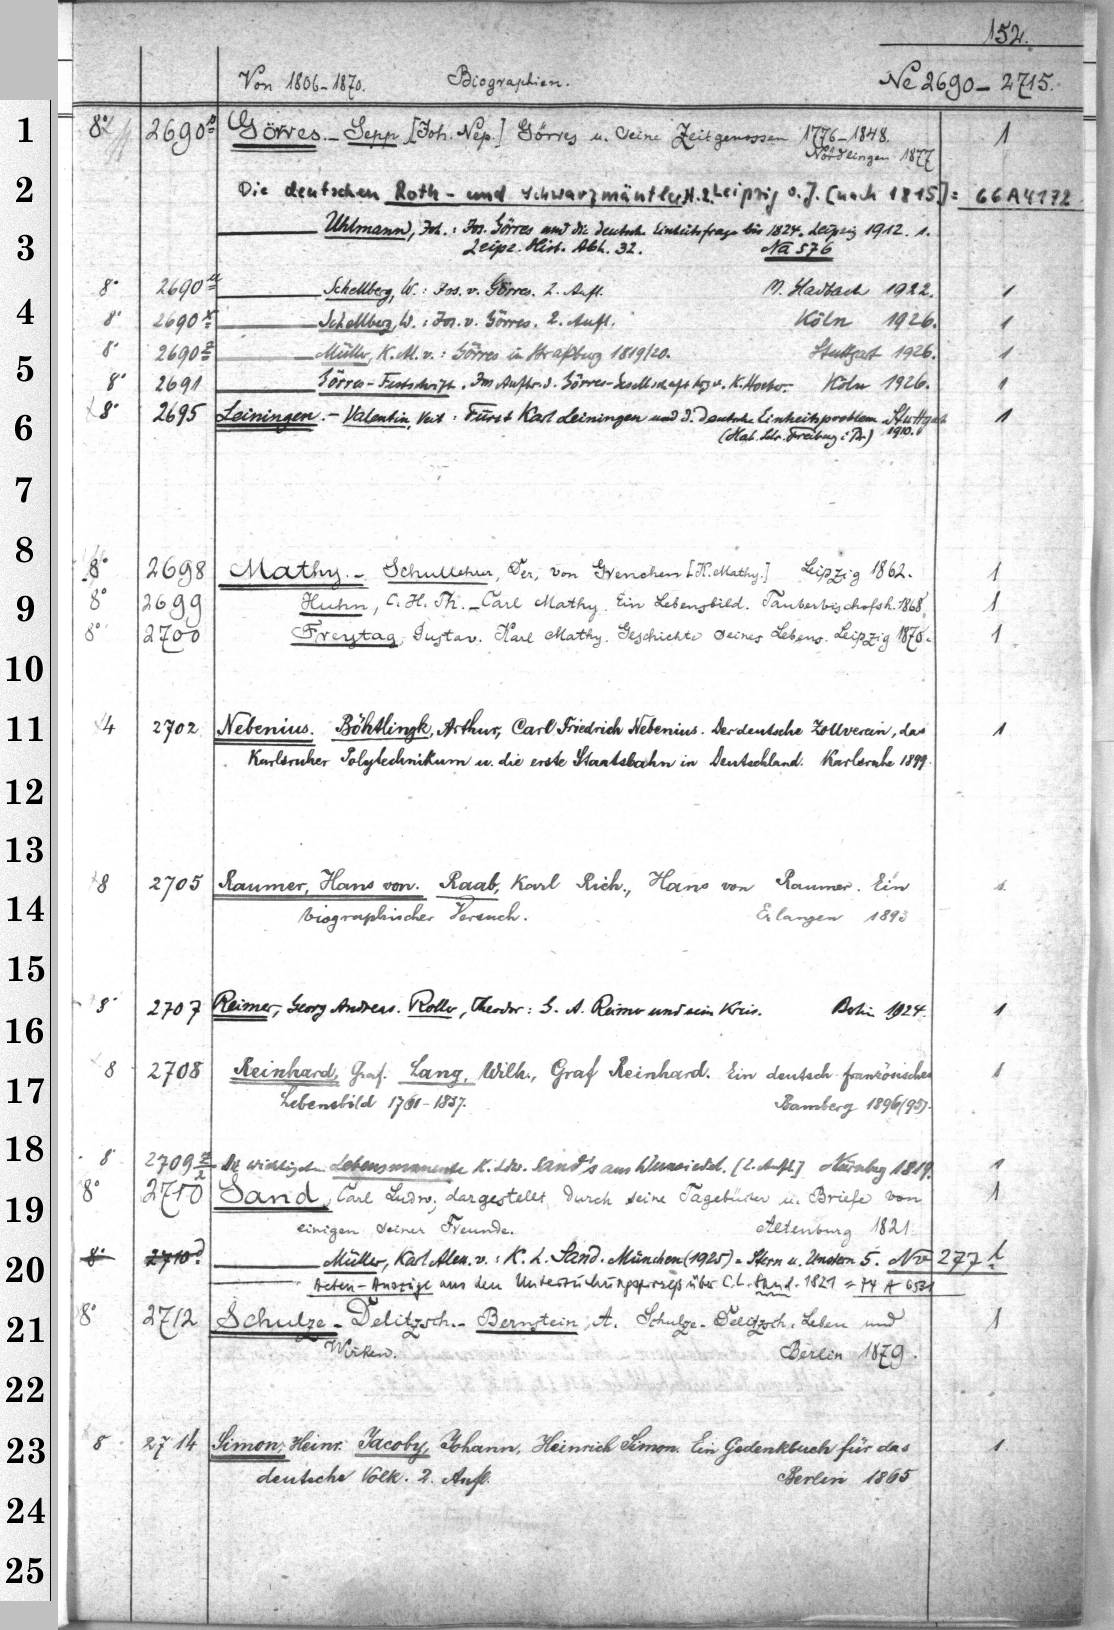 152.
Von 1806-1870. Biographien. Ne 2690-2715.
1 8° 2690 Görres. - Sepp, [Joh. Nep.] Görres u. seine Zeitgenossen 1776-1848. 1
Nördlingen 1877
2 Die deutschen Roth- und Schwarzmäntler. Leipzig o. J. [nach 1815] = 66 A 4172
Uhlmann, Joh.: Jos. Görres und die deutsche Einheitsfrage bis 1824. Leipzig 1912. 1.
3 Leipz. Hist. Abh. 32. Na 576
8° 2690 u Schellberg, W.: Jos. v. Görres. 2. Aufl. M. Gladbach 1922. 1
4 8° 2690 x Schellberg, W.: Jos. v. Görres. 2. Aufl. Köln 1926. 1
8° 2690 z Müller, K. A. v.: Görres in Straßburg 1819/20. Stuttgart 1926. 1
5 8° 2691 Görres-Festschrift. Im Auftr. d. Görres-Gesellschaft hg. v. K. Hoeber. Köln 1926. 1
6 8° 2695 Leiningen. - Valentin, Veit: Fürst Karl Leiningen und d. Deutsche Einheitsproblem. Stuttgart 1
(Hab. Schr. Freiburg i. Br.) 1910.
7
8
8° 2698 Mathy. - Schullehrer, Der, von Grenchen [K. Mathy.] Leipzig 1862. 1
9 8° 2699 Huhn, E. H. Th. - Carl Mathy. Ein Lebensbild. Tauberbischofsh. 1868. 1
8° 2700 Freytag, Gustav. Karl Mathy. Geschichte seines Lebens. Leipzig 1870. 1
10
11 4 2702 Nebenius. Böhtlingk, Arthur, Carl Friedrich Nebenius. Der deutsche Zollverein, das 1
Karlsruher Polytechnikum u. die erste Staatsbahn in Deutschland. Karlsruhe 1899.
12
13
8 2705 Raumer, Hans von. Raab, Karl Rich., Hans von Raumer. Ein 1.
14 biographischer Versuch. Erlangen 1893
15
8° 2707 Reimer, Georg Andreas. Roller, Theodor: G. A. Reimer und sein Kreis. Berlin 1924. 1
16
8 2708 Reinhard, Graf. Lang, Wilh., Graf Reinhard. Ein deutsch-französisches 1
17 Lebensbild 1761-1837. Bamberg 1896(95).
18 8° 2709 Die wichtigsten Lebensmomente K. Ldw. Sand's aus Wunsiedel. [2. Aufl.] Nürnberg 1819. 1
19 8° 2710 Sand, Carl Ludw., dargestellt durch seine Tagebücher u. Briefe von 1
einigen seiner Freunde. Altenburg 1821.
20 8° 2710 d Müller, Karl Alex. v.: K. L. Sand. München (1925) = Stern u. Unstern 5. Nv 277 l
Acten-Auszüge aus dem Untersuchungsprozeß über C. L. Sand. 1821 = 74 A 6531
21 8° 2712 Schulze-Delitzsch. - Bernstein, A. Schulze-Delitzsch. Leben und 1
Wirken. Berlin 1879.
22
23 8 2714 Simon, Heinr. Jacoby, Johann, Heinrich Simon. Ein Gedenkbuch für das 1.
deutsche Volk. 2. Aufl. Berlin 1865
24
25